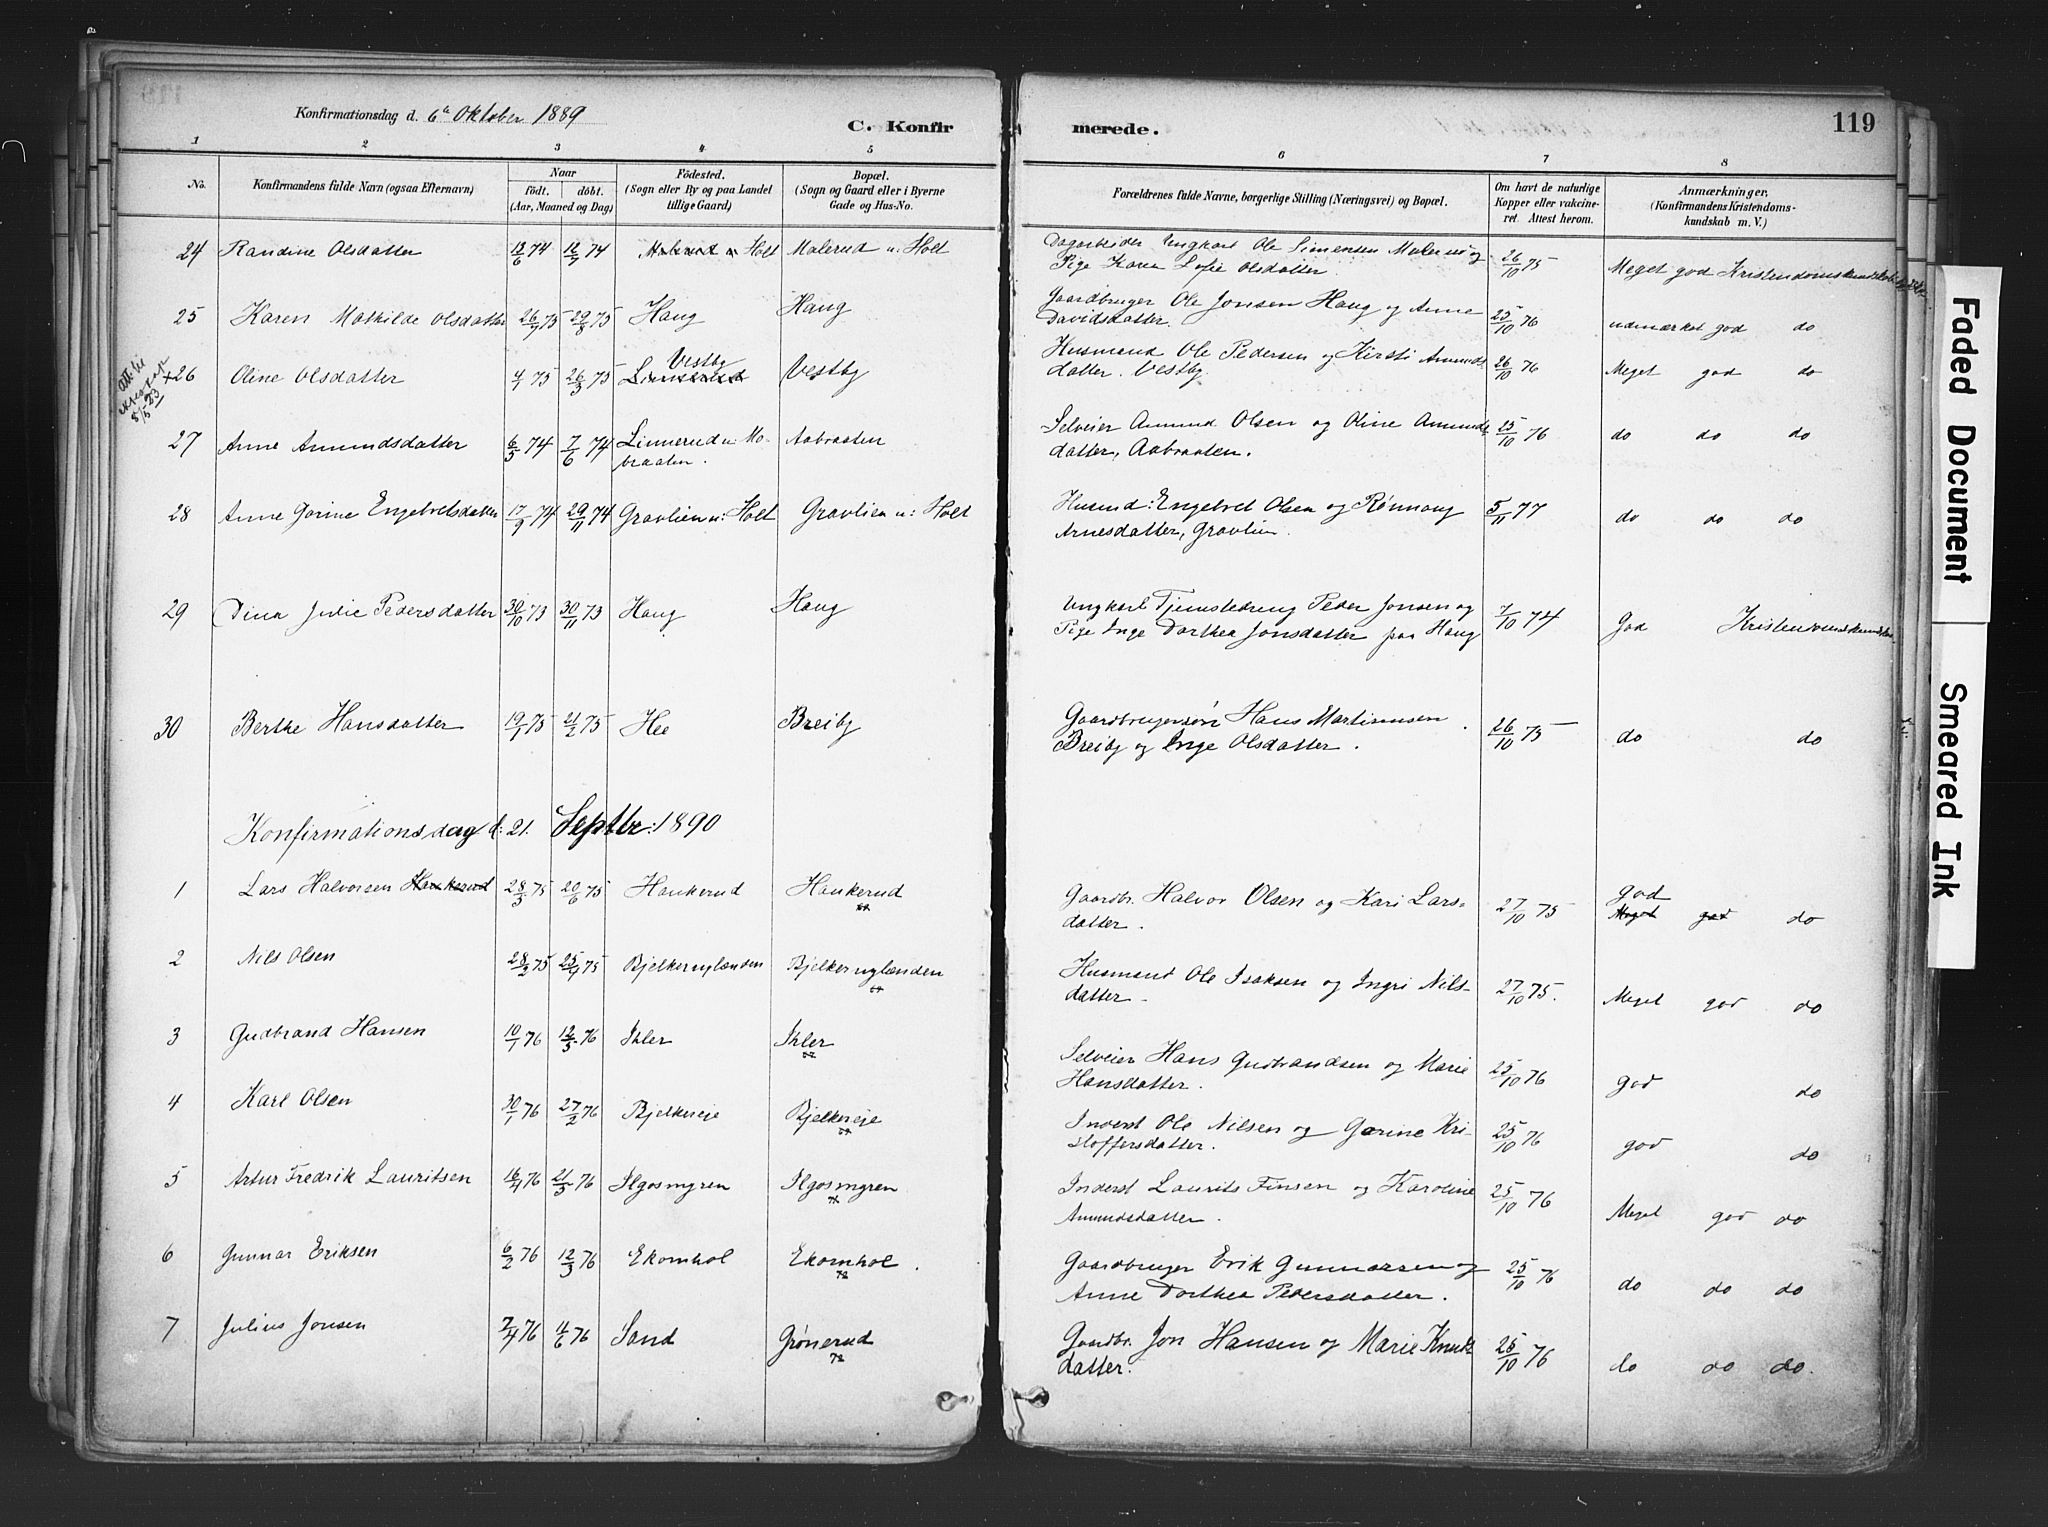 Konfirmationsdag d. 6te Oktober 1889
C. Konfirmerede.
119
1 2 3 4 5 6 7 8
No.
Konfirmandens fulde Navn (ogsaa Efternavn)
Naar
født. døbt.
(Aar, Maaned og Dag)
Fødested.
(Sogn eller By og paa Landet
tillige Gaard)
Bopæl.
(Sogn og Gaard eller i Byerne
Gade og Hus-No.
Forældrenes fulde Navne, borgerlige Stilling (Næringsvei) og Bopæl.
Om havt de naturlige
Kopper eller vakcine-
ret. Attest herom.
Anmærkninger,
(Konfirmandens Kristendoms-
kundskab m. V.)
24 Randine Olsdatter 12/6 74 12/7 74 Malerud u Holt Malerud u: Holt Dagarbeider Ungkarl Ole Simensen Malerud og
Pige Karen Sofie Olsdatter. 26/10 75 Meget god Kristendomskundskab
25 Karen Mathilde Olsdatter 26/7 75 29/8 75 Haug Haug Gaardbruger Ole Jonsen Haug og Anne
Davidsdatter. 25/10 76 udmærket god do
26 Oline Olsdatter 4/1 75 26/3 75 Vestby Linnerud Vestby Husmand Ole Pedersen og Kirsti Amunds
datter. Vestby 26/10 76 Meget god do
27 Anne Amundsdatter 6/5 74 7/6 74 Linnerud u: Mo- Aabraaten Selveier Amund Olsen og Oline Amunds
braaten. datter, Aabraaten. 25/10 76 do do do
28 Anne Gorine Engebretsdatter 17/9 74 29/11 74 Gravlien u: Holt Gravlien u: Holt Husmd: Engebret Olsen og Rønnaug
Arnesdatter, Gravlien. 5/11 77 do do do
29 Dina Julie Pedersdatter 30/10 73 30/11 73 Haug Haug Ungkarl Tjenestedreng Peder Jonsen og
Pige Inge Dorthea Jonsdatter paa Haug 7/10 74 God Kristendomskundskab
30 Berthe Hansdatter 19/1 75 21/2 75 Hee Breiby Gaardbrugersøn Hans Martinusen
Breiby og Inge Olsdatter. 26/10 75 do do
Konfirmationsdag d: 21. Septbr: 1890
1 Lars Halvorsen Haukerud 28/5 75 20/6 75 Haukerud Haukerud Gaardbr. Halvor Olsen og Kari Lars-
datter. 27/10 75 god Meget god do
2 Nils Olsen 28/2 75 25/4 75 Bjelkerylænden Bjelkerylænden Husmand Ole Isaksen og Ingri Nils-
datter 27/10 75. Meget god do
3 Gudbrand Hansen 10/1 76 12/3 76 Ihler Ihler Selveier Hans Gudbrandsen og Marie
Hansdatter. 25/10 76 god do
4 Karl Olsen 30/1 76 27/2 76 Bjelkereje Bjelkereje Inderst Ole Nilsen og Gorine Kri-
stoffersdatter. 25/10 76 god do
5 Artur Fredrik Lauritsen 16/4 76 21/5 76 Ilgosmyren Ilgosmyren Inderst Laurits Finsen og Karoline
Amundsdatter. 25/10 76 Meget god do
6 Gunnar Eriksen 6/2 76 12/3 76 Ekornhol Ekornhol. Gaardbruger Erik Gunnarsen og
Anne Dorthea Pedersdatter. 25/10 76 do do do
7 Julius Jonsen 7/4 76 4/6 76 Sand Grønerud Gaardbr. Jon Hansen og Marie Knuts
datter. 25/10 76 do do do.
Faded Document
Smeared Ink